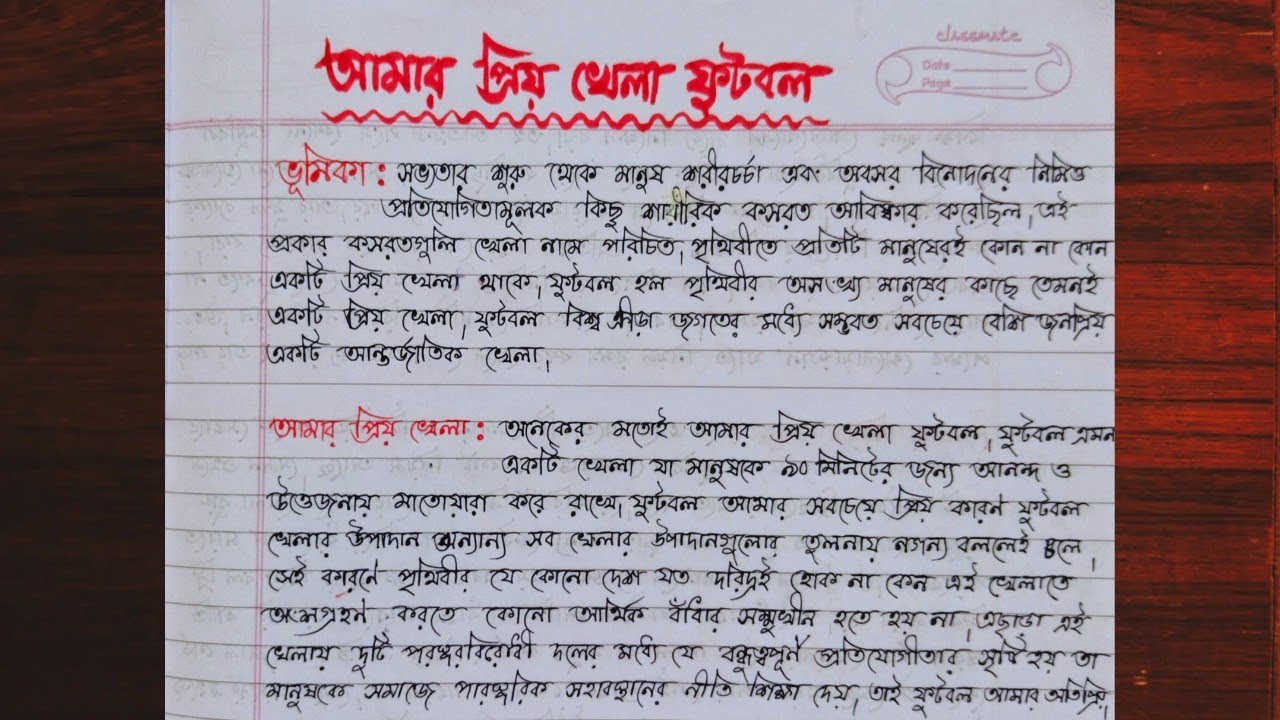 classmate
Date
Page
আমার প্রিয় খেলা ফুটবল
ভূমিকা : সভ্যতার শুরু থেকে মানুষ শরীরচর্চা এবং অবসর বিনোদনের নিমিত্ত
প্রতিযোগিতামূলক কিছু শারীরিক কসরত আবিষ্কার করেছিল, এই
প্রকার কসরতগুলি খেলা নামে পরিচিত, পৃথিবীতে প্রতিটি মানুষেরই কোন না কোন
একটি প্রিয় খেলা থাকে, ফুটবল হল পৃথিবীর অসংখ্য মানুষের কাছে তেমনই
একটি প্রিয় খেলা, ফুটবল বিশ্ব ক্রীড়া জগতের মধ্যে সম্ভবত সবচেয়ে বেশি জনপ্রিয়
একটি আন্তর্জাতিক খেলা,
আমার প্রিয় খেলা : অনেকের মতোই আমার প্রিয় খেলা ফুটবল, ফুটবল এমন
একটি খেলা যা মানুষকে ৯০ মিনিটের জন্য আনন্দ ও
উত্তেজনায় মাতোয়ারা করে রাখে, ফুটবল আমার সবচেয়ে প্রিয় কারণ ফুটবল
খেলার উপাদান অন্যান্য সব খেলার উপাদানগুলোর তুলনায় নগন্য বললেই চলে,
সেই কারনে পৃথিবীর যে কোনো দেশ যত দরিদ্রই হোক না কেন এই খেলাতে
অংশগ্রহণ করতে কোনো আর্থিক বাঁধার সম্মুখীন হতে হয় না, এছাড়া এই
খেলায় দুটি পরস্পরবিরোধী দলের মধ্যে যে বন্ধুত্বপূর্ণ প্রতিযোগীতার সৃষ্টি হয় তা
মানুষকে সমাজে পারস্পরিক সহাবস্থানের নীতি শিক্ষা দেয়, তাই ফুটবল আমার অতিপ্রিয়,